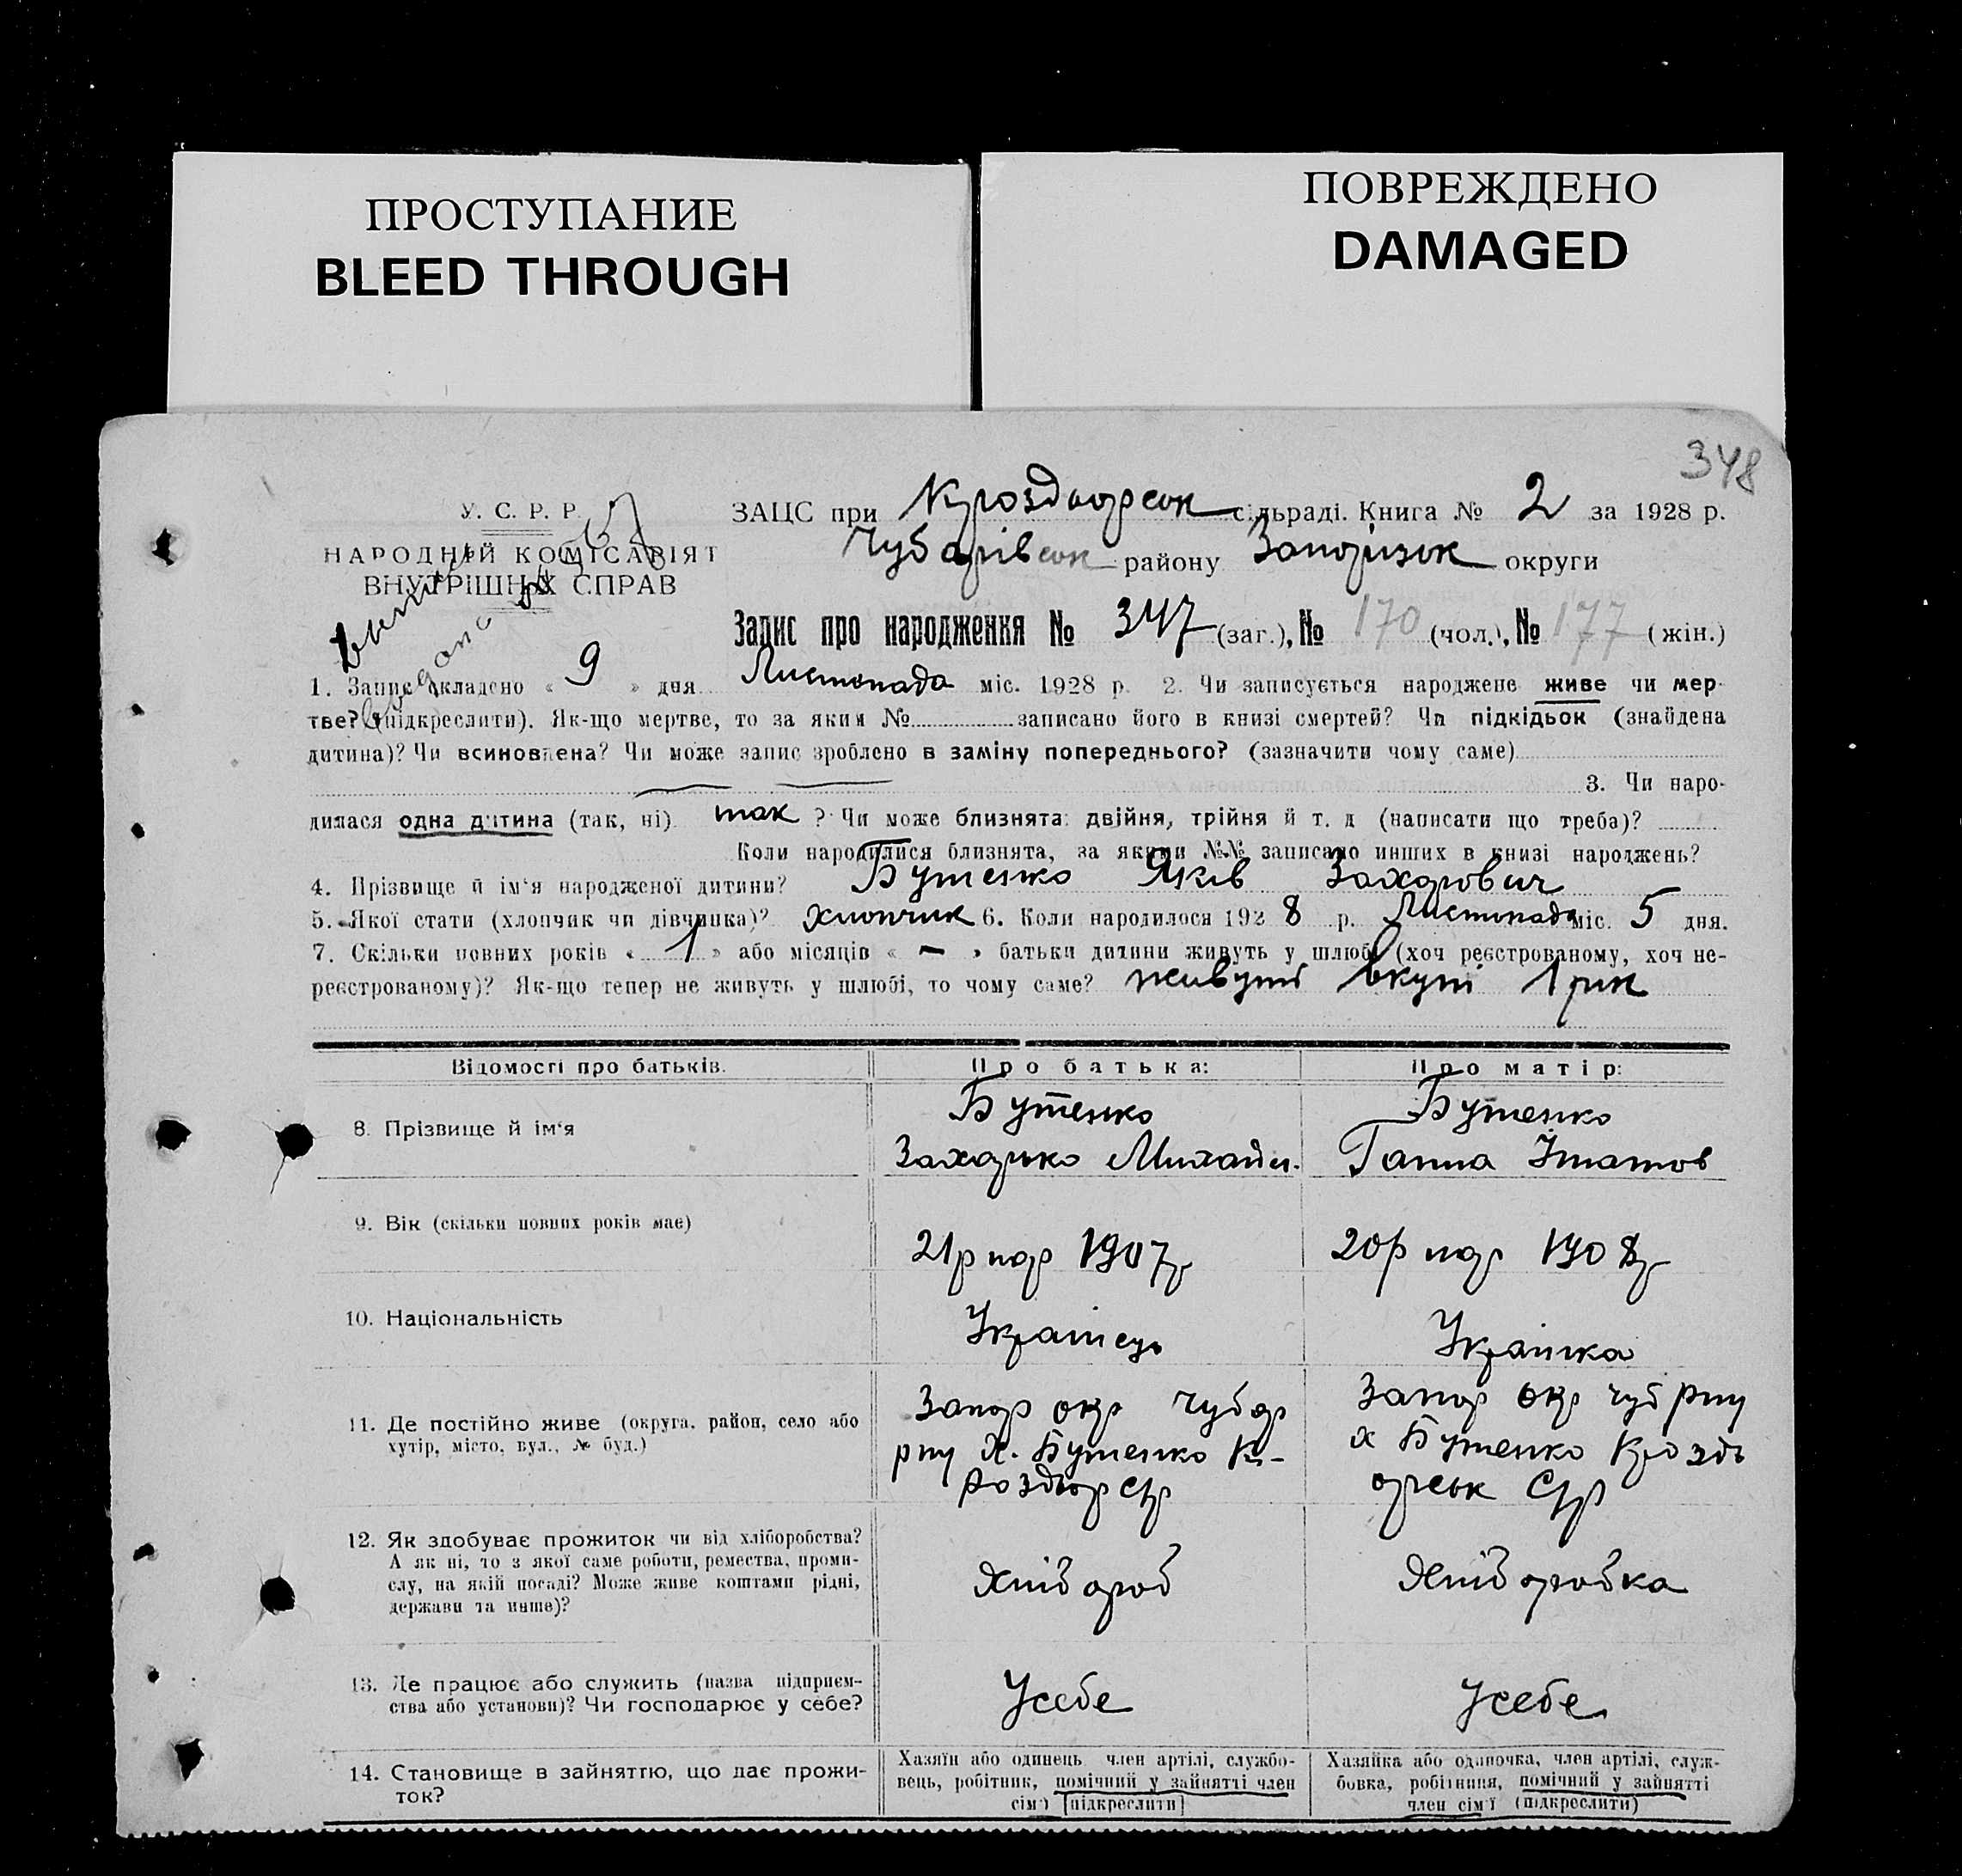 ПРОСТУПАНИЕ
BLEED THROUGH
ПОВРЕЖДЕНО
DAMAGED
348
У. С. Р. Р.
НАРОДНІЙ КОМІСАРІЯТ
ВНУТРІШНІХ СПРАВ
ЗАЦС при Кроздоорськ сільраді. Книга № 2 за 1928 р.
Чубарівськ району Запорізьк округи
Запис про народження № 347 (заг.), № 170 (чол.), № 177 (жін.)
1. Запис складено « 9 » дня Листопада міс. 1928 р. 2. Чи записується народжене живе чи мер-
тве? (підкреслити). Як-що мертве, то за яким № записано його в книзі смертей? Чи підкідьок (знайдена
дитина)? Чи всиновлена? Чи може запис зроблено в заміну попереднього? (зазначити чому саме)
3. Чи наро-
дилася одна дитина (так, ні) так ? Чи може близнята: двійня, трійня й т. д (написати що треба)?
Коли народилися близнята, за якими №№ записано инших в книзі народжень?
4. Прізвище й ім'я народженої дитини? Бутенко Яків Захарович
5. Якої стати (хлопчик чи дівчинка)? хлопчик 6. Коли народилося 1928 р. Листопада міс. 5 дня.
7. Скільки повних років « 1 » або місяців « — » батьки дитини живуть у шлюбі (хоч реєстрованому, хоч не-
реєстрованому)? Як-що тепер не живуть у шлюбі, то чому саме? живуть вкупі 1 рік
Відомості про батьків.
Про батька:
Про матір:
8. Прізвище й ім'я
Бутенко
Захарько Михайл.
Бутенко
Ганна Ігнатов
9. Вік (скільки повних років має)
21р нар 1907р
20р нар 1908р
10. Національність
Українець
Українка
11. Де постійно живе (округа, район, село або
хутір, місто, вул., № буд.)
Запор окр Чубар
рну х. Бутенко К-
Роздор Ср
Запор окр Чуб рну
х Бутенко Кроздь
орськ Ср
12. Як здобуває прожиток чи від хліборобства?
А як ні, то з якої саме роботи, ремества, проми-
слу, на якій посаді? Може живе коштами рідні,
держави та инше)?
Хлібороб
Хліборобка
13. Де працює або служить (назва підприєм-
ства або установи)? Чи господарює у себе?
Усебе
Усебе
14. Становище в зайняттю, що дає прожи-
ток?
Хазяїн або одинець, член артілі, службо-
вець, робітник, помічний у зайнятті член
сім'ї (підкреслити)
Хазяйка або одиночка, член артілі, служ-
бовка, робітниця, помічний у зайнятті
член сім'ї (підкреслити)